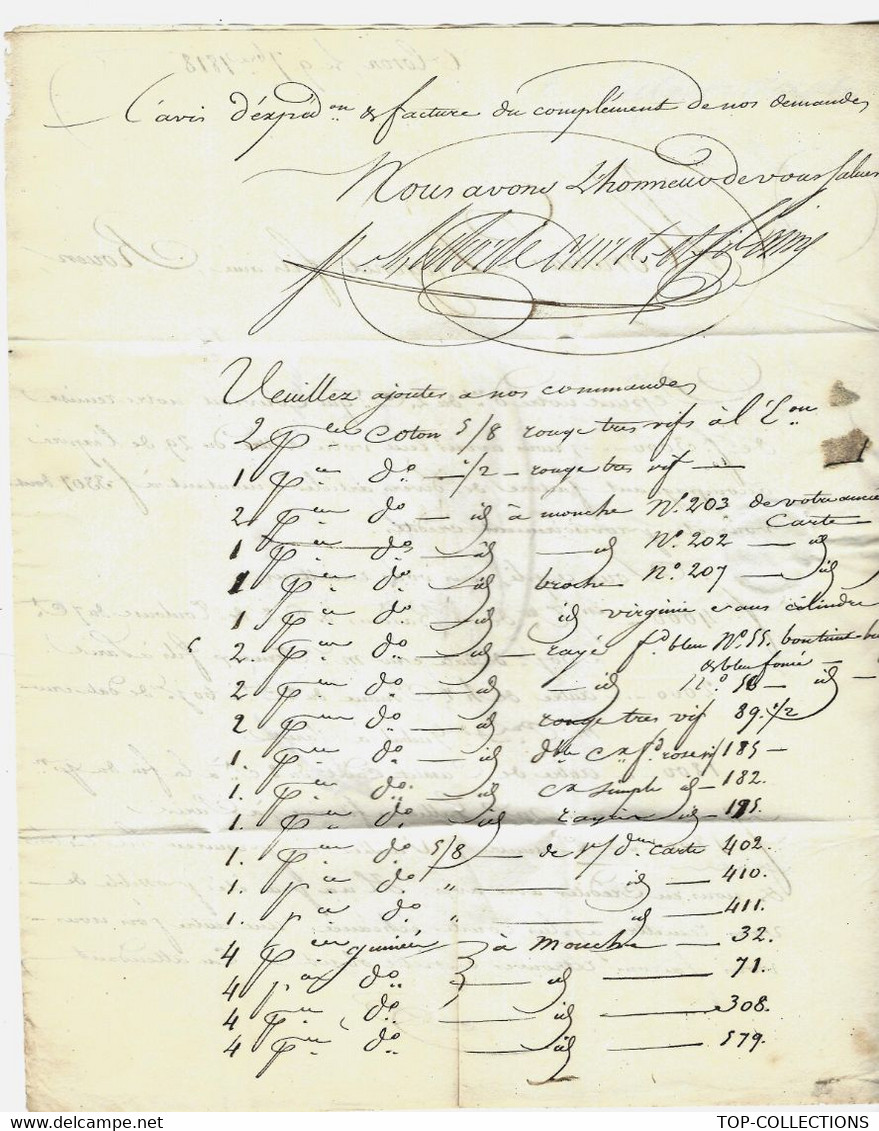 L'avis d'expédon & facture du complément de nos demandes
Nous avons L'honneur de vous saluer
Veuillez ajouter a nos commandes
2 pces Coton 5/8 rouge tres vifs à l'
1 pce do 1/2 rouge tres vif
2 pces do — id à mouche No. 203 de votre ancie
Carte
1 pce do — id — id No. 202 — id
1 pce do — id broche No. 207 — id
1 pce do — id id virginie sans cilindre
2 pces do — id — rayé fd bleu No 55. bon teint
& bleu foncé —
2 pces do — id — id No 56 — id —
2 pces do — id rouge tres vif 89. 1/2
1. pce do — id dble fd rose vif 185 —
1. pce do — id simple id — 182.
1. pce do — id rayé id — 195.
1. pce do 5/8 — de carte 402.
1. pce do " — id — 410.
1. pce do " — id — 411.
4 pces guinées à Mouche — 32.
4 pces do — id — 71.
4 pces do — id — 308.
4 pces do — id — 579.
TOP-COLLECTIONS